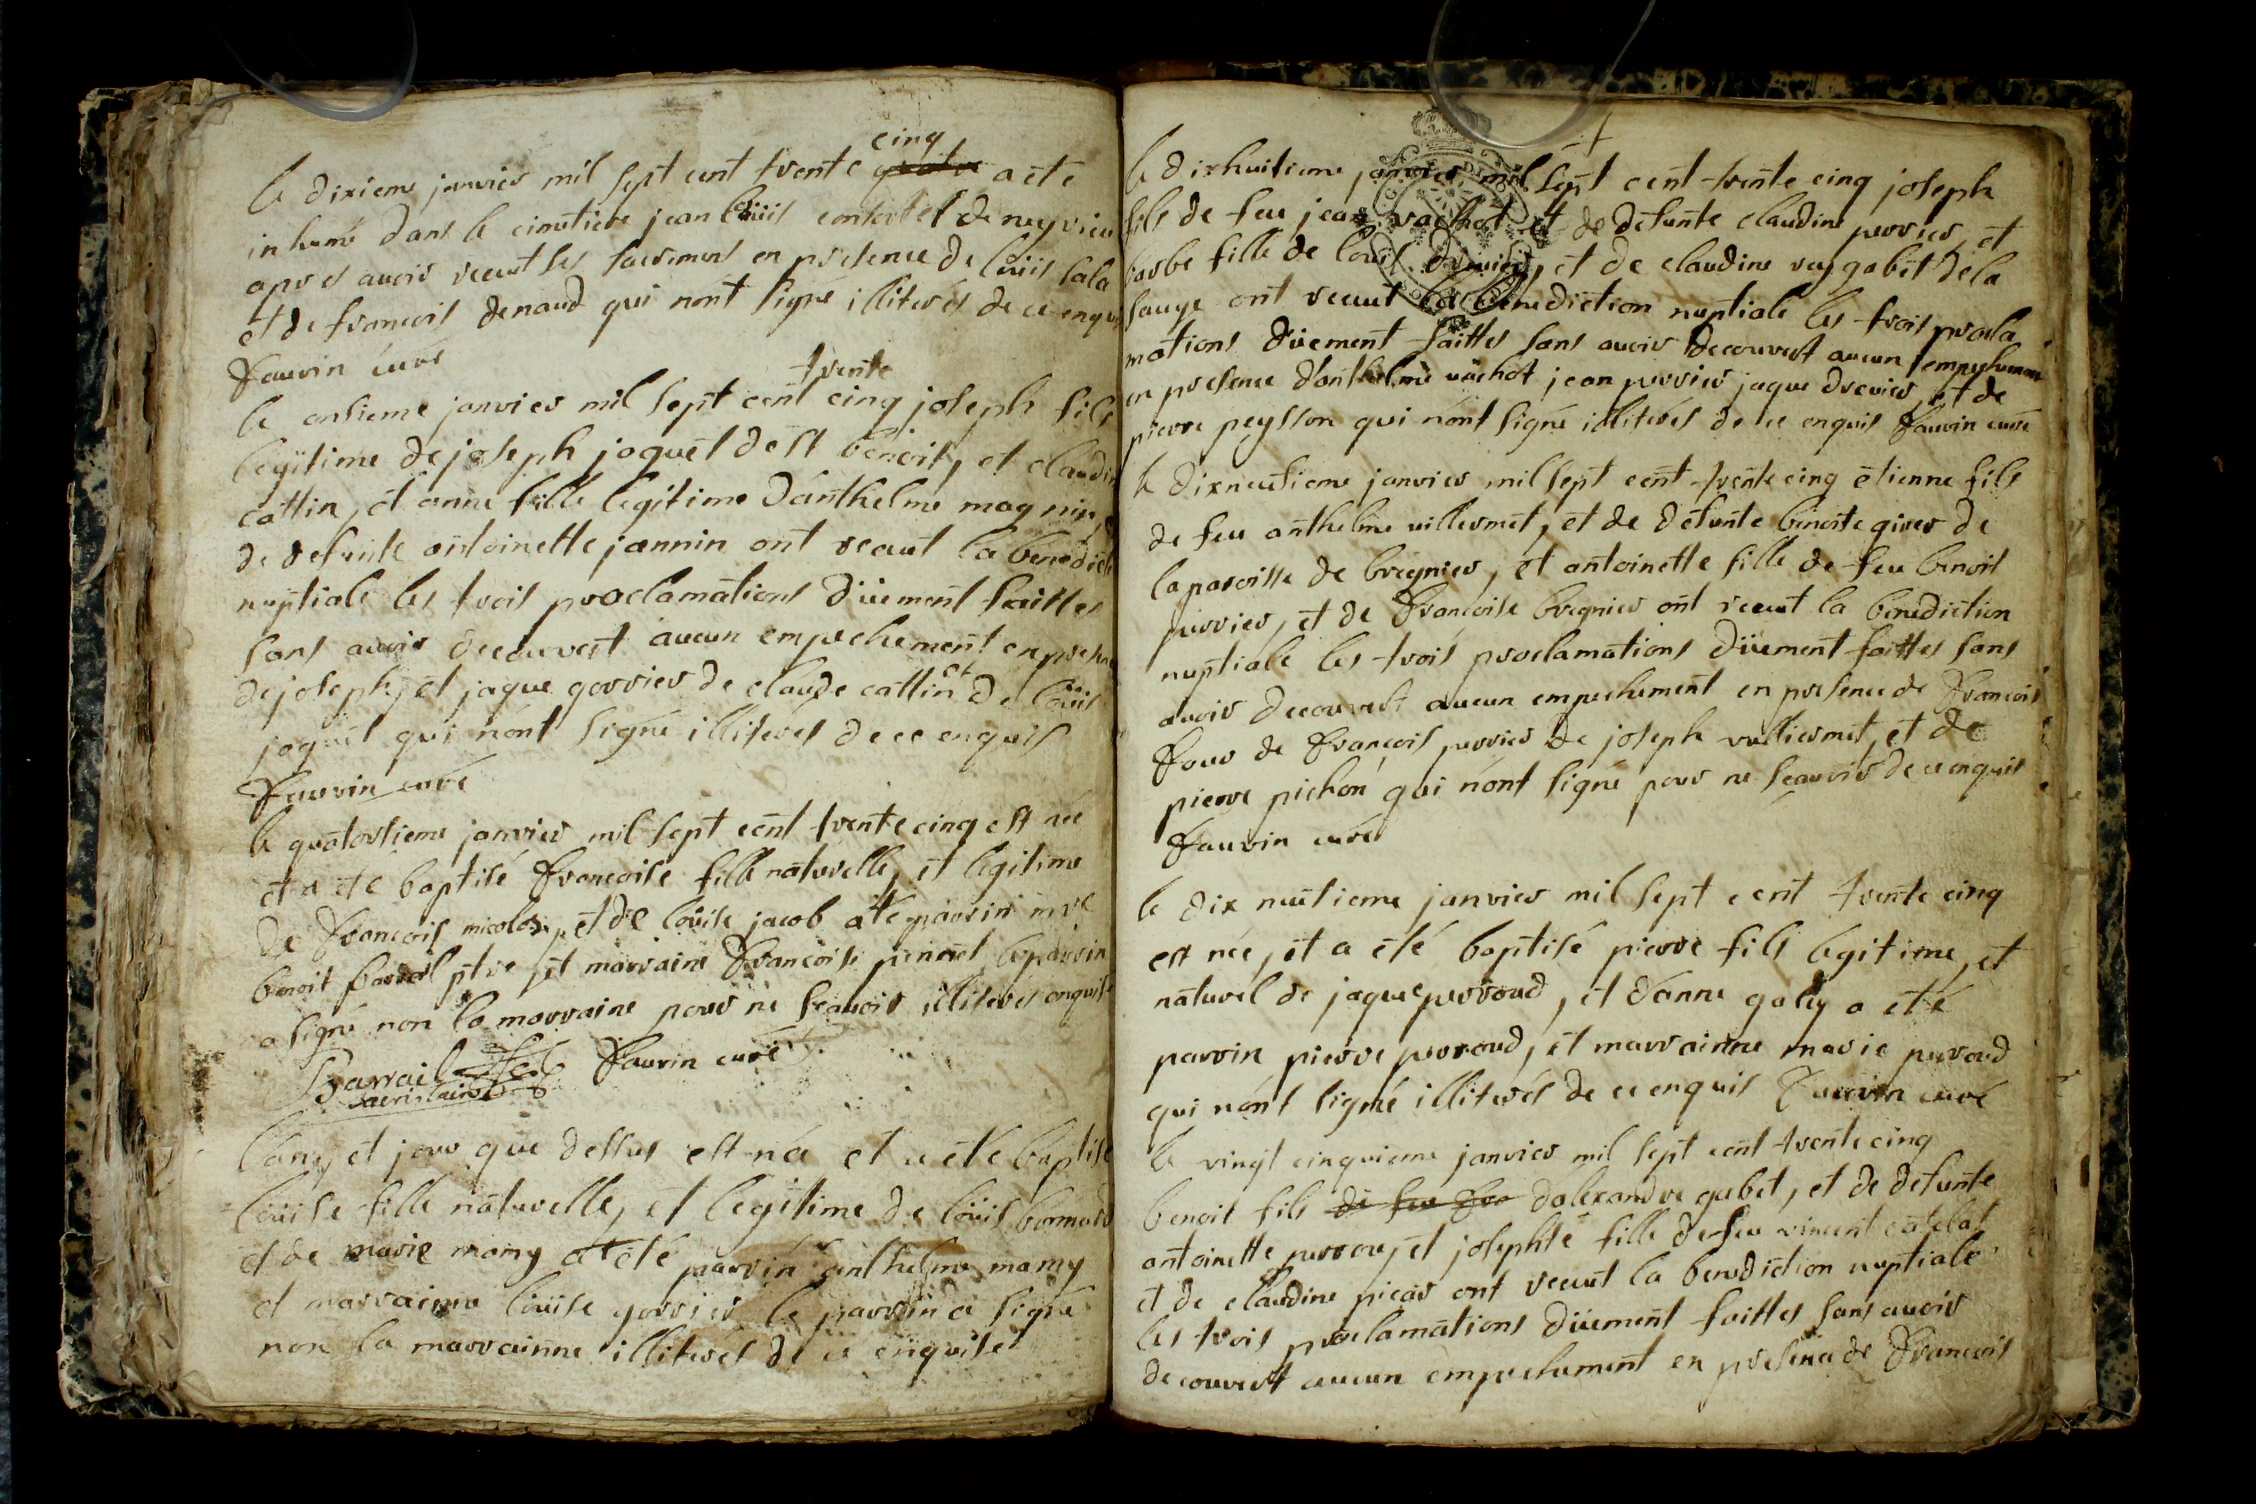 le dixieme janvier mil sept cent trente cinq quatre a eté
inhumé dans le cimetiere jean loüis de
apres avoir receut ses sacremens en presence de loüis
et de francois denaud qui nont signé illiterés de ce enquis
Fauvin curé
le onsieme janvier mil sept cent trente cinq joseph fils
legitime de joseph joquet de st benoit, et claudin
cattin, et anne fille legitime d'anthelme magnin, et
de defunte antoinette jannin ont receut la benedicti
nuptiale les trois proclamations düement faittes
sans avoir decouvert aucun empechement en presenc
de joseph, et jaque gorrier de claude cattin et de loüis
joquet qui n'ont signé illiterés de ce enquis
Fauvin curé
le quatorsieme janvier mil sept cent trente cinq est née
et a eté baptisé Francoise fille naturelle, et legitime
de Francois nicolas, et de loüise jacob a eté parrin mre
benoit barral ptre et marraine Francoise le parrin
a signé non la marraine pour ne scavoir illiteres enquise
Barrail Fauvin curé
sacristain
l'an, et jour que dessus est née et a eté baptisé
loüise fille naturelle, et legitime de loüis bonnard
et de marie mamy a eté parrin anthelme mamy
et marrainne loüise gorrier le parrin a signé
non la marrainne illiterés de ce enquise
le dixhuitieme janvier mil sept cent trente cinq joseph
fils de feu jean vachot et de defunte claudine perrier, et
barbe fille de louis drevier, et de claudine rey gabet de la
sauge ont receut la benediction nuptiale les trois procla
mations düement faittes sans avoir decouvert aucun empechement
en presence d'anthelme vachot jean perrier jaque drevier, et de
pierre peysson qui n'ont signé illiterés de ce enquis Fauvin curé
le dixneufieme janvier mil sept cent trente cinq etienne fils
de feu anthelme villermet, et de defunte benoite giver de
la paroisse de bregnier, et antoinette fille de feu benoit
perrier, et de Francoise bregnier ont receut la benediction
nuptiale les trois proclamations düement faittes sans
avoir decouvert aucun empechement en presence de Francois
four de Francois perrier de joseph vulliermet, et de
pierre pichon qui n'ont signé pour ne scavoir de ce enquis
Fauvin curé
le dix neufieme janvier mil sept cent trente cinq
est née, et a eté baptisé pierre fils legitime, et
naturel de jaque perroud, et d'anne galey a eté
parrin pierre perroud, et marrainne marie perroud
qui n'ont signé illiterés de ce enquis Fauvin curé
le vingt cinquieme janvier mil sept cent trente cinq
benoit fils de feu Fra dalexandre gabet, et de defunte
antoinette perrou, et josephte fille de feu vincent catelat
et de claudine picar ont receut la benediction nuptiale
les trois proclamations düement faittes sans avoir
decouvert aucun empechement en presence de Francois